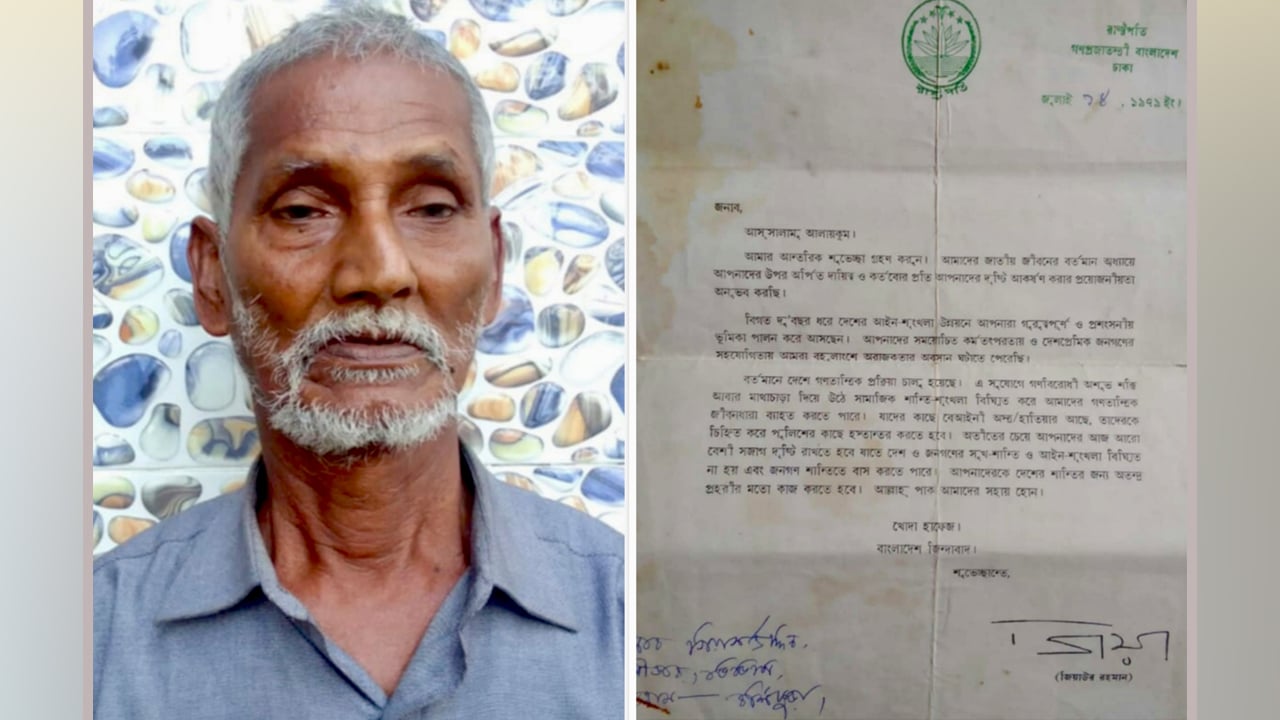 রাষ্ট্রপতি
রাষ্ট্রপতি
গণপ্রজাতন্ত্রী বাংলাদেশ
ঢাকা
জুলাই ১৪, ১৯৭৯ ইং।
জনাব,
আস্‌সালামু আলায়কুম।
আমার আন্তরিক শুভেচ্ছা গ্রহণ করুন। আমাদের জাতীয় জীবনের বর্তমান অধ্যায়ে
আপনাদের উপর অর্পিত দায়িত্ব ও কর্তব্যের প্রতি আপনাদের দৃষ্টি আকর্ষণ করার প্রয়োজনীয়তা
অনুভব করছি।
বিগত দু'বছর ধরে দেশের আইন-শৃংখলা উন্নয়নে আপনারা গুরুত্বপূর্ণ ও প্রশংসনীয়
ভূমিকা পালন করে আসছেন। আপনাদের সময়োচিত কর্মতৎপরতায় ও দেশপ্রেমিক জনগণের
সহযোগিতায় আমরা বহুলাংশে অরাজকতার অবসান ঘটাতে পেরেছি।
বর্তমানে দেশে গণতান্ত্রিক প্রক্রিয়া চালু হয়েছে। এ সুযোগে গণবিরোধী অশুভ শক্তি
আবার মাথাচাড়া দিয়ে উঠে সামাজিক শান্তি-শৃংখলা বিঘ্নিত করে আমাদের গণতান্ত্রিক
জীবনধারা ব্যাহত করতে পারে। যাদের কাছে বেআইনী অস্ত্র/হাতিয়ার আছে, তাদেরকে
চিহ্নিত করে পুলিশের কাছে হস্তান্তর করতে হবে। অতীতের চেয়ে আপনাদের আজ আরো
বেশী সজাগ দৃষ্টি রাখতে হবে যাতে দেশ ও জনগণের সুখ-শান্তি ও আইন-শৃংখলা বিঘ্নিত
না হয় এবং জনগণ শান্তিতে বাস করতে পারে। আপনাদেরকে দেশের শান্তির জন্য অতন্দ্র
প্রহরীর মতো কাজ করতে হবে। আল্লাহ্‌ পাক আমাদের সহায় হোন।
খোদা হাফেজ।
বাংলাদেশ জিন্দাবাদ।
শুভেচ্ছান্তে,
জিয়া
(জিয়াউর রহমান)